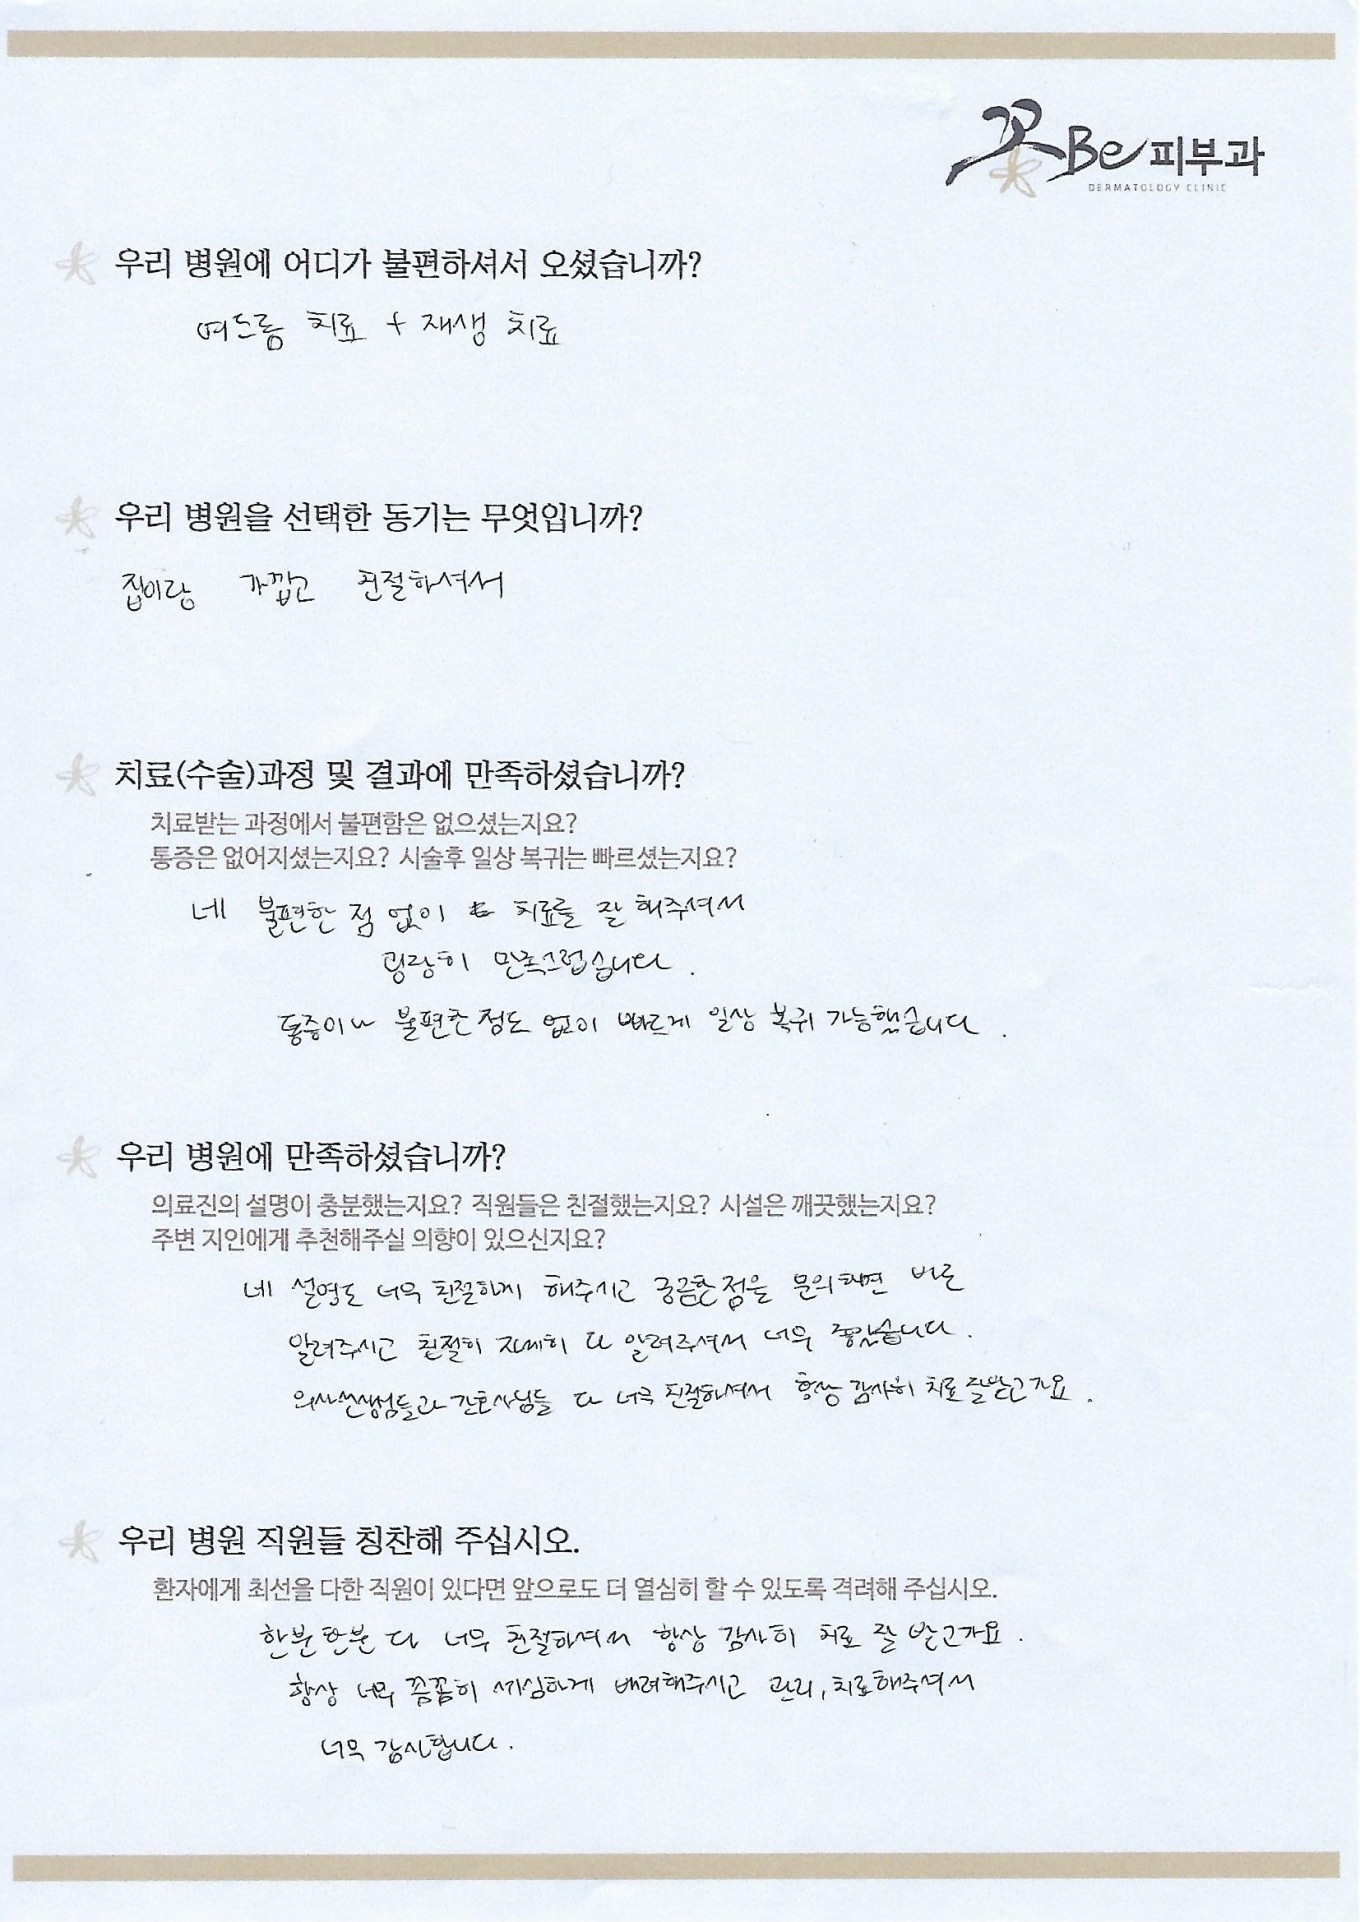 꽃Be피부과
DERMATOLOGY CLINIC
우리 병원에 어디가 불편하셔서 오셨습니까?
여드름 치료 + 재생 치료
우리 병원을 선택한 동기는 무엇입니까?
집이랑 가깝고 친절하셔서
치료(수술)과정 및 결과에 만족하셨습니까?
치료받는 과정에서 불편함은 없으셨는지요?
통증은 없어지셨는지요? 시술후 일상 복귀는 빠르셨는지요?
네 불편한 점 없이 치료를 잘 해주셔서
굉장히 만족스럽습니다.
통증이나 불편한 점도 없이 빠르게 일상 복귀 가능했습니다.
우리 병원에 만족하셨습니까?
의료진의 설명이 충분했는지요? 직원들은 친절했는지요? 시설은 깨끗했는지요?
주변 지인에게 추천해주실 의향이 있으신지요?
네 설명도 너무 친절하게 해주시고 궁금한 점을 문의하면 바로
알려주시고 친절히 자세히 다 알려주셔서 너무 좋았습니다.
의사선생님들과 간호사님들 다 너무 친절하셔서 항상 감사히 치료 잘받고가요.
우리 병원 직원들 칭찬해 주십시오.
환자에게 최선을 다한 직원이 있다면 앞으로도 더 열심히 할 수 있도록 격려해 주십시오.
한분한분 다 너무 친절하셔서 항상 감사히 치료 잘 받고가요.
항상 너무 꼼꼼히 세심하게 배려해주시고 관리, 치료해주셔서
너무 감사합니다.